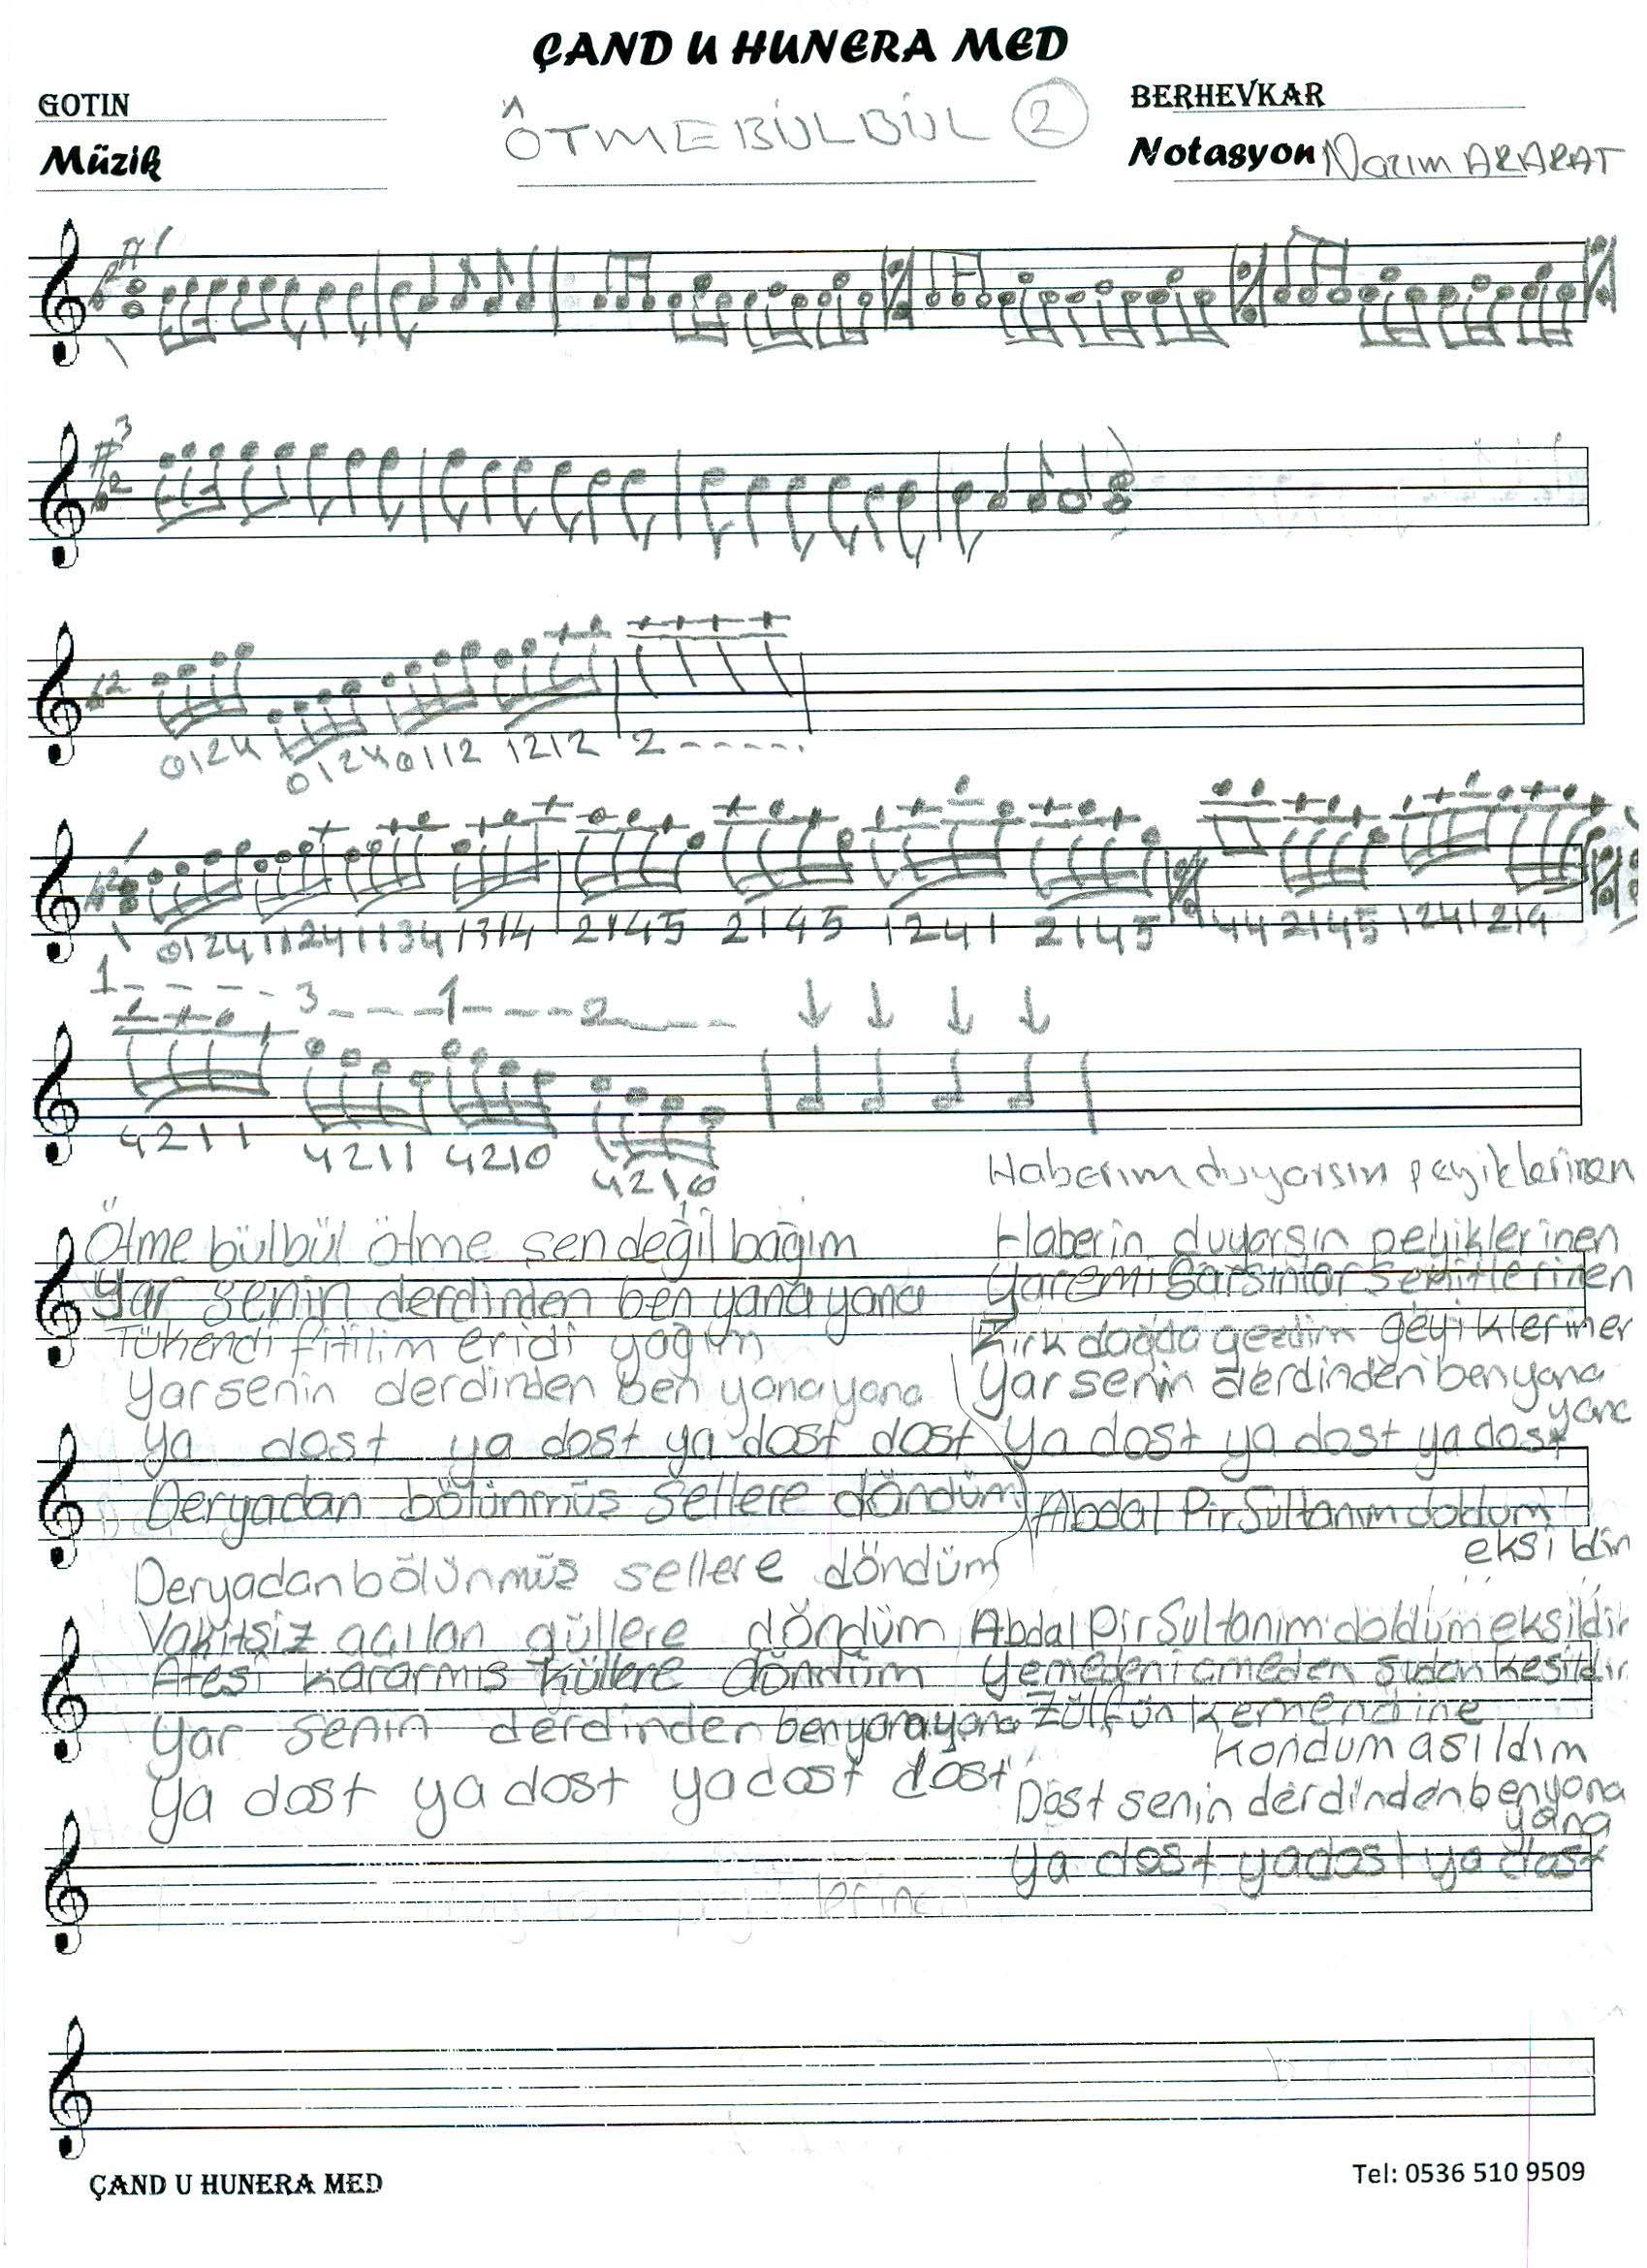 ÇAND U HUNERA MED
GOTIN
ÖTME BÜLBÜL 2
BERHEVKAR
Müzik
Notasyon Nazım ARARAT
3
2
2
0124 0124 0112 1212 2
0124 1124 1134 1314 2145 2145 1241 2145 44 2145 1241 214
1 3 1 2
4211 4211 4210 4210
Haberım duyarsın peyiklerinen
Ötme bülbül ötme şen değil bağım
Yar senin derdinden ben yana yana
Tükendi fitilim eridi yağım
Yar senin derdinden ben yana yana
Ya dost ya dost ya dost dost
Deryadan bölünmüş sellere döndüm
Deryadan bölünmüş sellere döndüm
Vakitsiz açılan güllere döndüm
Ateşi kararmış küllere döndüm
Yar senin derdinden ben yana yana
Ya dost ya dost ya dost dost
Haberin duyarsın peyiklerinen
Yaremi sarsınlar şehitlerinen
Kırk dağda gezdim geyiklerinen
Yar senin derdinden ben yana
yana
Ya dost ya dost ya dost
Abdal Pir Sultanım doldum
eksildim
Abdal Pir Sultanım doldum eksildim
Yemeden içmeden sudan kesildim
Zülfün kemendine
kondum asıldım
Dost senin derdinden ben yana
yana
Ya dost ya dost ya dost
ÇAND U HUNERA MED
Tel: 0536 510 9509